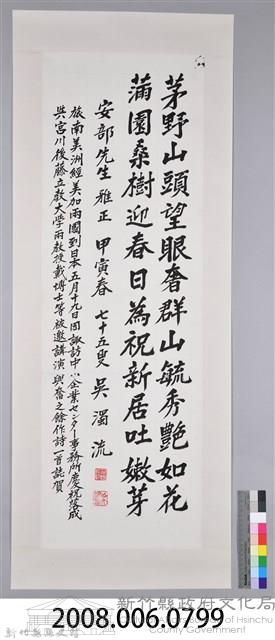 茅野山頭望眼奢群山毓秀艷如花
滿園桑樹迎春日為祝新居吐嫩芽
安部先生 雅正 甲寅春 七十五叟 吳濁流
旅南美洲經美加兩國到日本五月十九日回諏訪中小企業センター事務所慶祝落成
與宮川後藤立教大学兩教授戴博士等被邀講演興奮之餘作詩一首誌賀
新竹縣政府文化局
Cultural Affairs Bureau of Hsinchu County Government
新竹縣縣史館
2008.006.0799